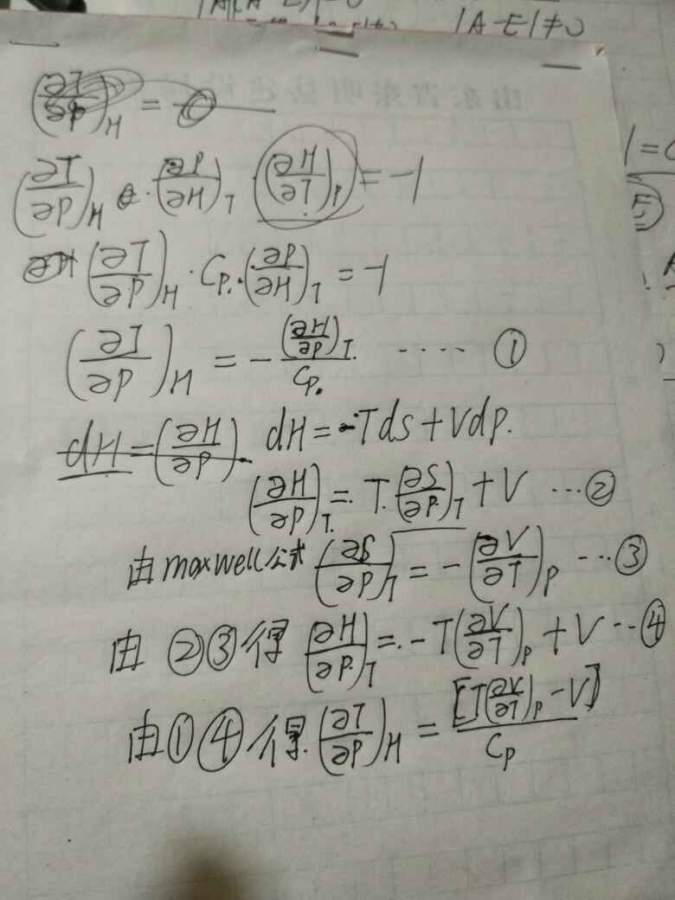 |A-E|≠0
(∂T/∂P)_H = 0
(∂T/∂P)_H · (∂P/∂H)_T · (∂H/∂T)_P = -1
(∂T/∂P)_H · C_P · (∂P/∂H)_T = -1
(∂T/∂P)_H = - (∂H/∂P)_T / C_P ····①
dH = (∂H/∂P) dH = Tds + Vdp.
(∂H/∂P)_T = T·(∂S/∂P)_T + V ···②
由maxwell公式 (∂S/∂P)_T = -(∂V/∂T)_P ···③
由②③得 (∂H/∂P)_T = -T(∂V/∂T)_P + V ··④
由①④得 (∂T/∂P)_H = [T(∂V/∂T)_P - V] / C_P